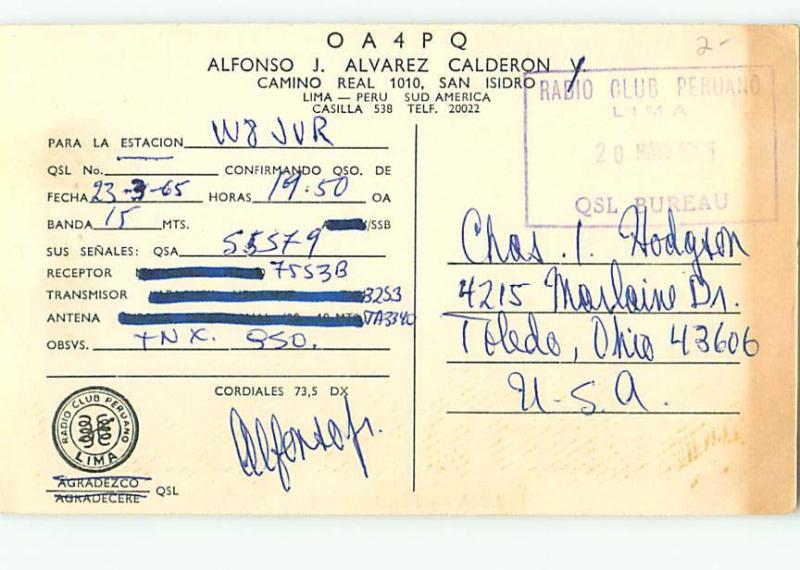 2-
OA4PQ
ALFONSO J. ALVAREZ CALDERON Y.
CAMINO REAL 1010, SAN ISIDRO
LIMA — PERU SUD AMERICA
CASILLA 538 TELF. 20022
RADIO CLUB PERUANO
LIMA
20 MAYO
QSL BUREAU
PARA LA ESTACION W8JVR
QSL No. CONFIRMANDO QSO. DE
FECHA 23-3-65 HORAS 19:50 OA
BANDA 15 MTS. /SSB
SUS SEÑALES: QSA 55579
RECEPTOR 75S3B
TRANSMISOR 32S3
ANTENA TA33
OBSVS. TNX. QSO.
CORDIALES 73,5 DX
Alfonso Jr.
RADIO CLUB PERUANO
LIMA
AGRADEZCO
AGRADECERE QSL
Chas. I. Hodgson
4215 Marlaine Dr.
Toledo, Ohio 43606
U.S.A.